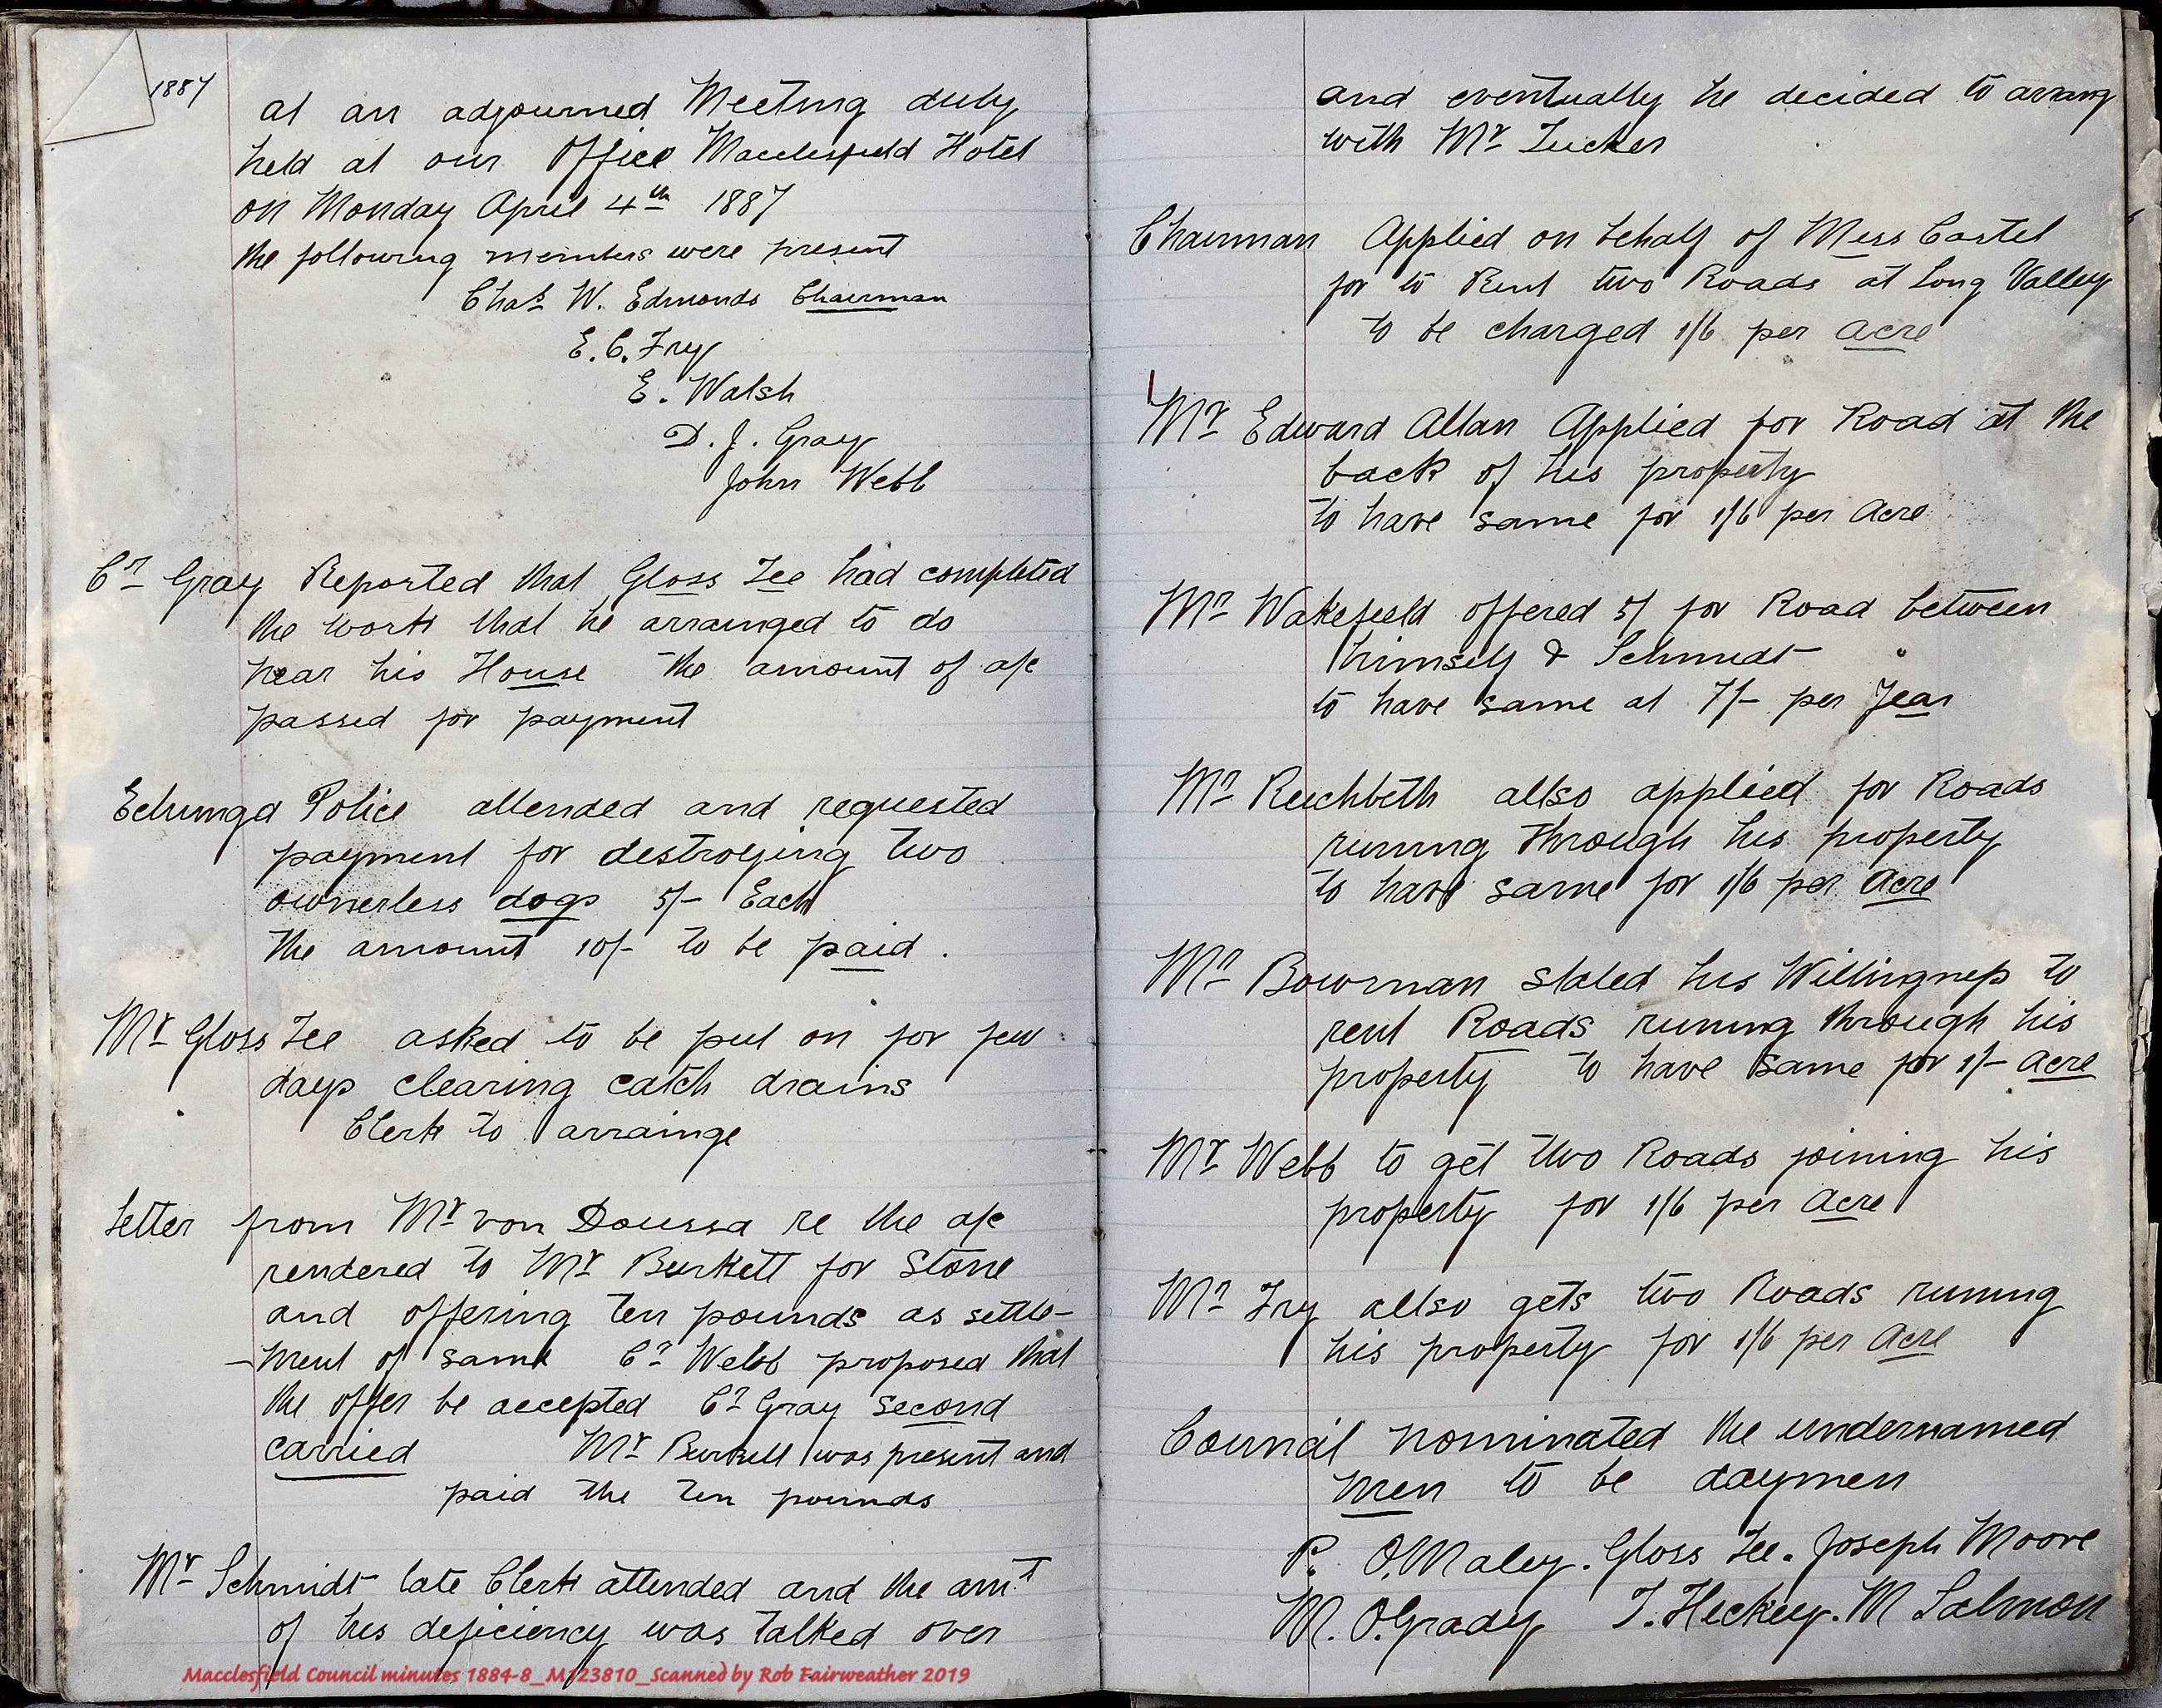 1887
at an adjourned Meeting duly
held at our Office Macclesfield Hotel
on Monday April 4th 1887
the following members were present
Chas W. Edmonds Chairman
E. C. Fry
E. Walsh
D. J. Gray
John Webb
Cr Gray Reported that Gloss Lee had completed
the work that he arrainged to do
near his House the amount of a/c
passed for payment
Echunga Police attended and requested
payment for destroying two
ownerless dogs 5/- Each
the amount 10/- to be paid.
Mr Gloss Lee asked to be put on for few
days clearing catch drains
Clerk to arrainge
Letter from Mr von Doussa re the a/c
rendered to Mr Burkett for Stone
and offering ten pounds as settle-
-ment of same Cr Webb proposed that
the offer be accepted Cr Gray second
carried Mr Burkett was present and
paid the ten pounds
Mr Schmidt late Clerk attended and the amt
of his deficiency was talked over
Macclesfield Council minutes 1884-8_M123810_Scanned by Rob Fairweather 2019
and eventually he decided to arrang
with Mr Tucker
Chairman Applied on behalf of Miss Castel
for to Rent two Roads at Long Valley
to be charged 1/6 per acre
Mr Edward Allan Applied for Road at the
back of his property
to have same for 1/6 per Acre
Mr Wakefield offered 5/ for Road between
himself & Schmidt
to have same at 7/- per Year
Mr Reichbeth allso applied for Roads
runing through his property
to have same for 1/6 per Acre
Mr Bowman stated his Willingness to
rent Roads runing through his
property to have same for 1/- acre
Mr Webb to get two Roads joining his
property for 1/6 per acre
Mr Fry allso gets two Roads runing
his property for 1/6 per Acre
Council nominated the undernamed
men to be daymen
P. O.Maley. Gloss Lee. Joseph Moore
M. O.Grady T. Hickey. M Salmon